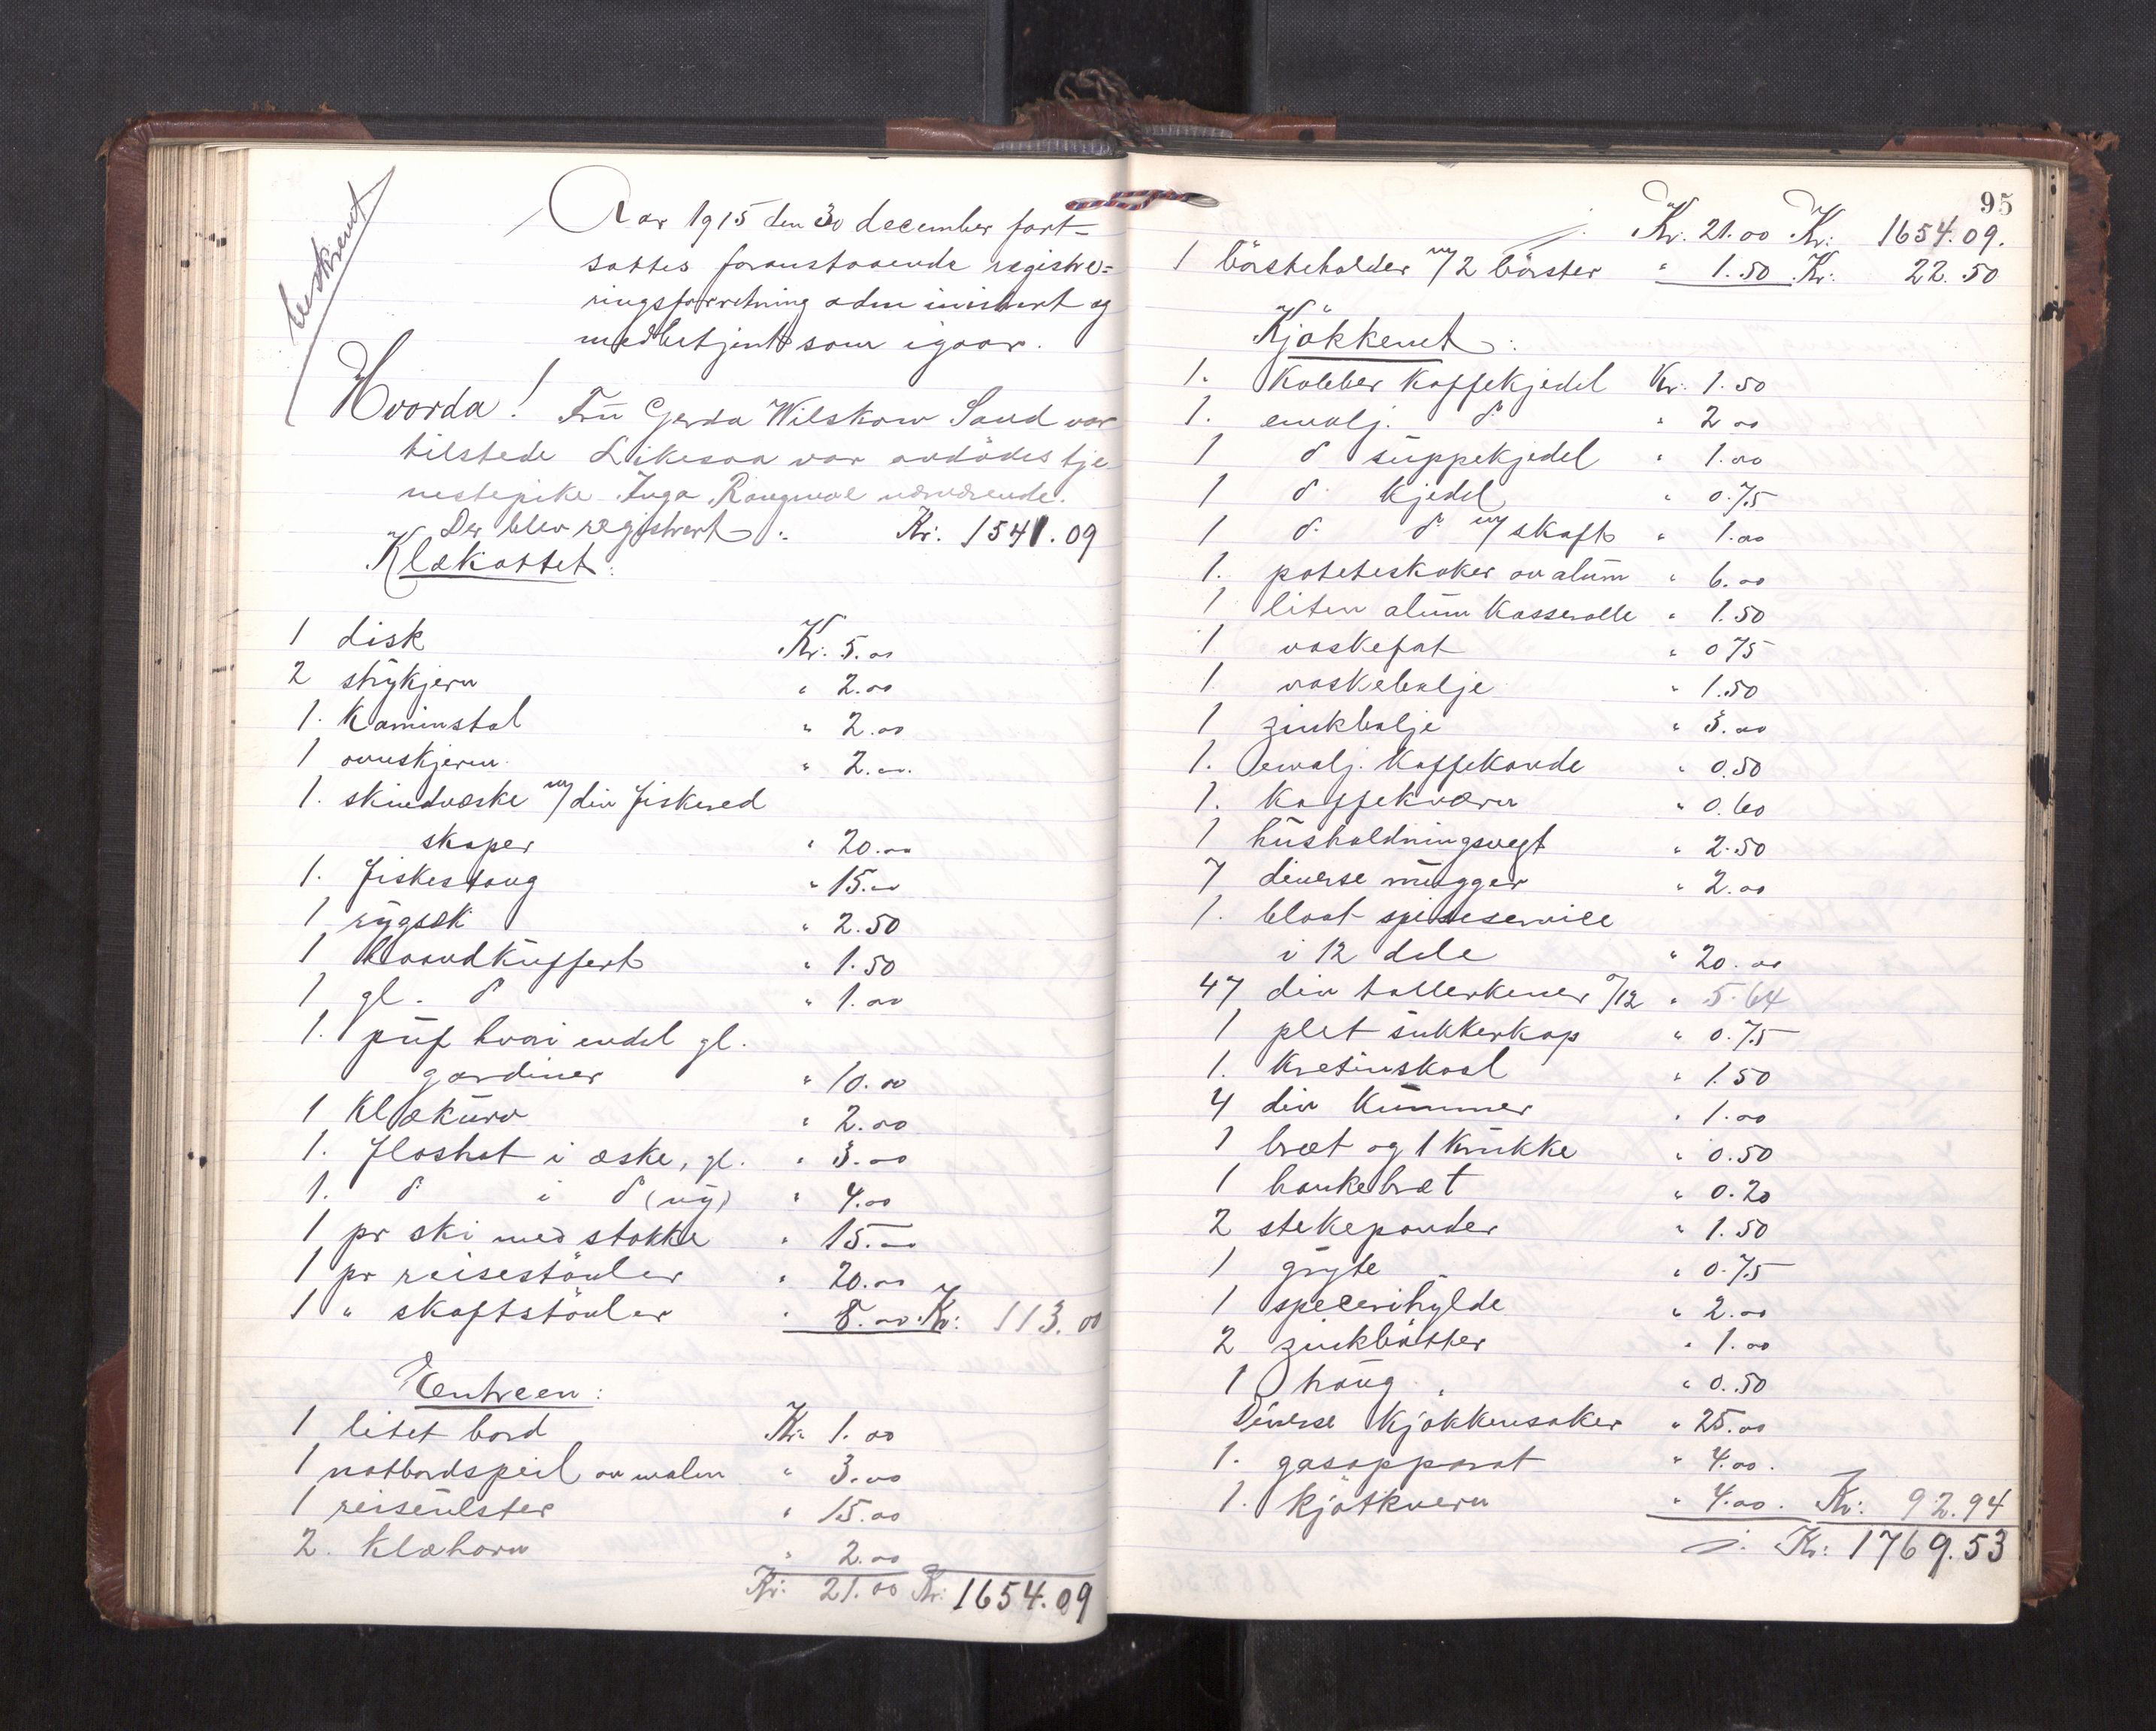 utskrevet
Aar 1915 den 30 december fort-
sattes foranstaaende registre-
ringsforretning adm inistrert og
medbetjent som igaar.
Hvorda! Fru Gerda Wilskow Sand var
tilstede Likesaa var avdødes tje
nestepike Inga Rongwoe nærværende.
Der blev registrert: Kr: 1541.09
Klækottet:
1 disk Kr. 5.00
2 strykjern " 2.00
1. Kaminstol " 2.00
1 ovnskjerm " 2.00
1. skindvæske m/ div fiskered
skaper " 20.00
1. fiskestang " 15.00
1 rygsæk " 2.50
1 haandkuffert " 1.50
1 gl. do " 1.00
1. puf hvori endel gl.
gardiner " 10.00
1 Klækurv " 2.00
1. floshat i æske, gl. " 3.00
1. do i do (ny) " 4.00
1 pr ski med stokke " 15.00
1 pr reisestøvler " 20.00
1 " skaftstøvler " 8.00 Kr: 113.00
Entreen:
1 litet bord Kr. 1.00
1 notbordspeil av malm " 3.00
1 reiseulster " 15.00
2. Klæhorn " 2.00
Kr: 21.00 Kr: 1654.09
95
Kr. 21.00 Kr: 1654.09.
1 børsteholder m/ 2 børster " 1.50 Kr: 22.50
Kjøkkenet:
1. Kobber Kaffekjedel Kr: 1.50
1. emalj. do " 2.00
1 do suppekjedel " 1.00
1 do kjedel " 0.75
1 do do m/ skaft " 1.00
1. poteteskoker av alum " 6.00
1 liten alum Kasserolle " 1.50
1 vaskefat " 0.75
1 vaskebalje " 1.50
1 zinkbalje " 3.00
1. emalj. Kaffekande " 0.50
1. Kaffekværn " 0.60
1 husholdningsvegt " 2.50
7 diverse mugger " 2.00
1. blaat spiseservice
i 12 dele " 20.00
47 div tallerkener á/12 " 5.64
1 plet sukkerkop " 0.75
1. Kretinskaal " 1.50
4 div Kummer " 1.00
1 bræt og 1 Krukke " 0.50
1 bankebræt " 0.20
2 stekepander " 1.50
1 gryte " 0.75
1 specerihylde " 2.00
2 zinkbøtter " 1.00
1 traug " 0.50
Diverse Kjøkkensaker " 25.00
1. gasapparat " 4.00.
1. Kjøtkvern " 4.00. Kr: 92.94
Kr: 1769.53